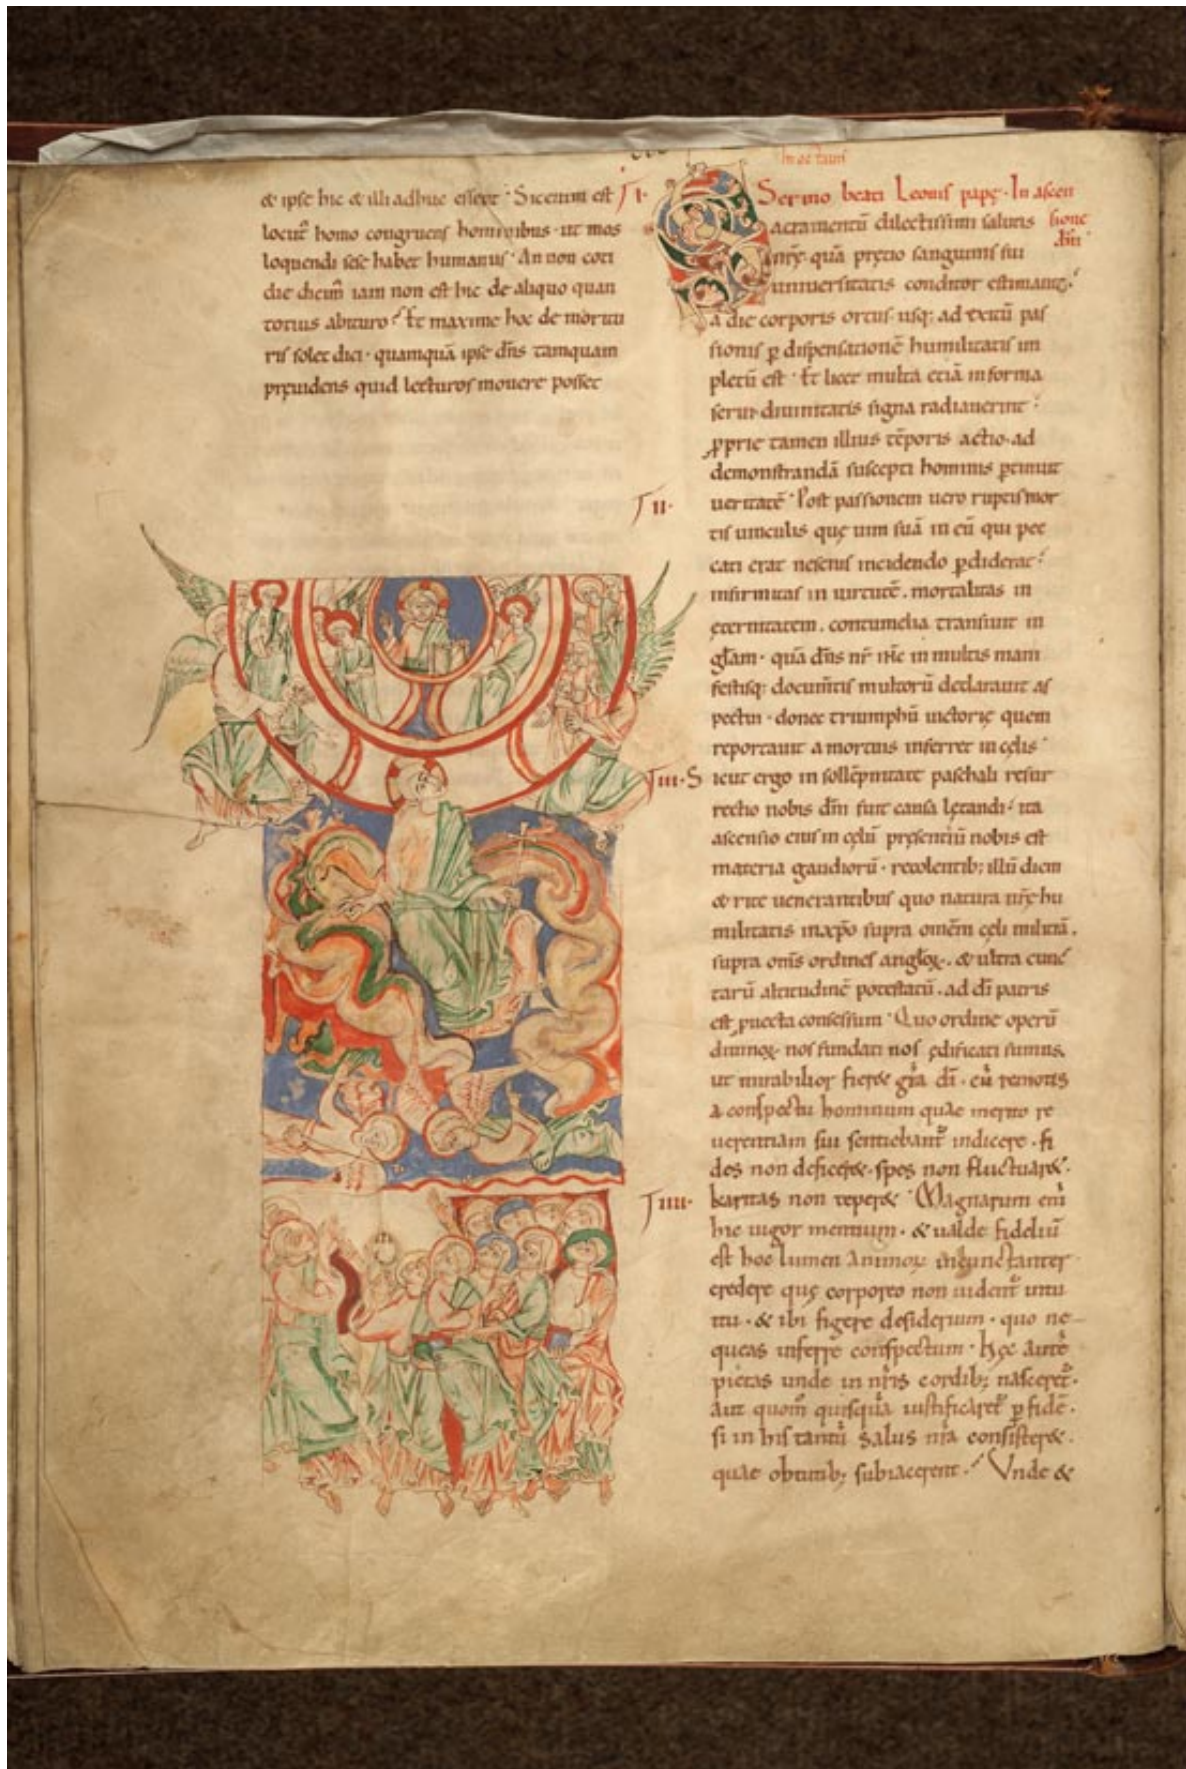 & ipse hic & illi adhuc essent · Sic enim est
locut᷒ homo congruens hominibus · ut mos
loquendi sese habet humanus · An non coti
die dicim᷒ iam non est hic de aliquo quan
totius abituro? Et maxime hoc de moritu
ris solet dici · quamquā ipse dn̄s tamquam
pręuidens quid lecturos mouere posset
In octauis
I· Sermo beati Leonis papę · In ascen
sione
dn̄i
Sacramentū dilectissimi salutis
nr̄ę · quā pręcio sanguinis sui
uniuersitatis conditor estimauit;
a die corporis ortus usq; ad exitū pas
sionis ꝑ dispensationē humilitatis im
pletū est · Et licet multa etiā in forma
serui diuinitatis signa radiauerint ;
ꝓprie tamen illius tēporis actio · ad
demonstrandā suscepti hominis ꝑtinuit
II· ueritatē · Post passionem uero ruptis mor
tis uinculis quę uim suā in eū qui pec
cati erat nescius incidendo ꝑdiderat ;
infirmitas in uirtutē . mortalitas in
ęternitatem . contumelia transiuit in
gl̄am · quā dn̄s nr̄ ih̄c in multis mani
festisq; documn̄tis multorū declarauit as
pectui · donec triumphū uictorię quem
reportauit a mortuis inferret in cęlis ·
III· Sicut ergo in sollēpnitate paschali resur
rectio nobis dn̄i fuit causa lętandi ; ita
ascensio eius in cęlū pręsentiū nobis est
materia gaudiorū · recolentib; illū diem
& rite uenerantibus quo natura nr̄ę hu
militatis in xp̄o supra omēm cęli militiā .
supra om̄s ordines anglꝝ . & ultra cunc
tarū altitudinē potestatū . ad dī patris
est ꝓuecta consessum · Quo ordine operū
diuinoꝝ nos fundati nos ędificati sumus .
ut mirabilior fier& gr̄a dī · cū remotis
a conspectu hominum quae merito re
uerentiam sui sentiebant᷒ indicere . fi
des non deficer& . spes non fluctuar& .
IIII· karitas non teper& · Magnarum enī
hic uigor mentium . & ualde fideliū
est hoc lumen animoꝝ incunctanter
credere quę corporeo non uident᷒ intu
itu · & ibi figere desiderium · quo ne
queas inferre conspectum · Hęc autē
pietas unde in nr̄is cordib; nasceret᷒ .
aut quom̊ quisquā iustificaret᷒ ꝑ fidē .
si in his tantū salus nr̄a consister& .
quae obtutib; subiacerent . Vnde &